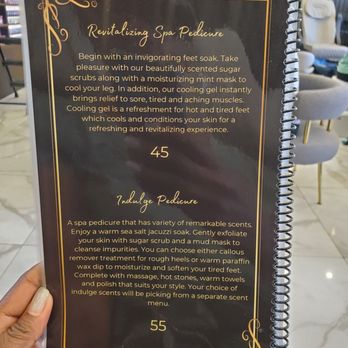 Revitalizing Spa Pedicure
Begin with an invigorating feet soak. Take
pleasure with our beautifully scented sugar
scrubs along with a moisturizing mint mask to
cool your leg. In addition, our cooling gel instantly
brings relief to sore, tired and aching muscles.
Cooling gel is a refreshment for hot and tired feet
which cools and conditions your skin for a
refreshing and revitalizing experience.
45
Indulge Pedicure
A spa pedicure that has variety of remarkable scents.
Enjoy a warm sea salt jacuzzi soak. Gently exfoliate
your skin with sugar scrub and a mud mask to
cleanse impurities. You can choose either callous
remover treatment for rough heels or warm paraffin
wax dip to moisturize and soften your tired feet.
Complete with massage, hot stones, warm towels
and polish that suits your style. Your choice of
indulge scents will be picking from a separate scent
menu.
55